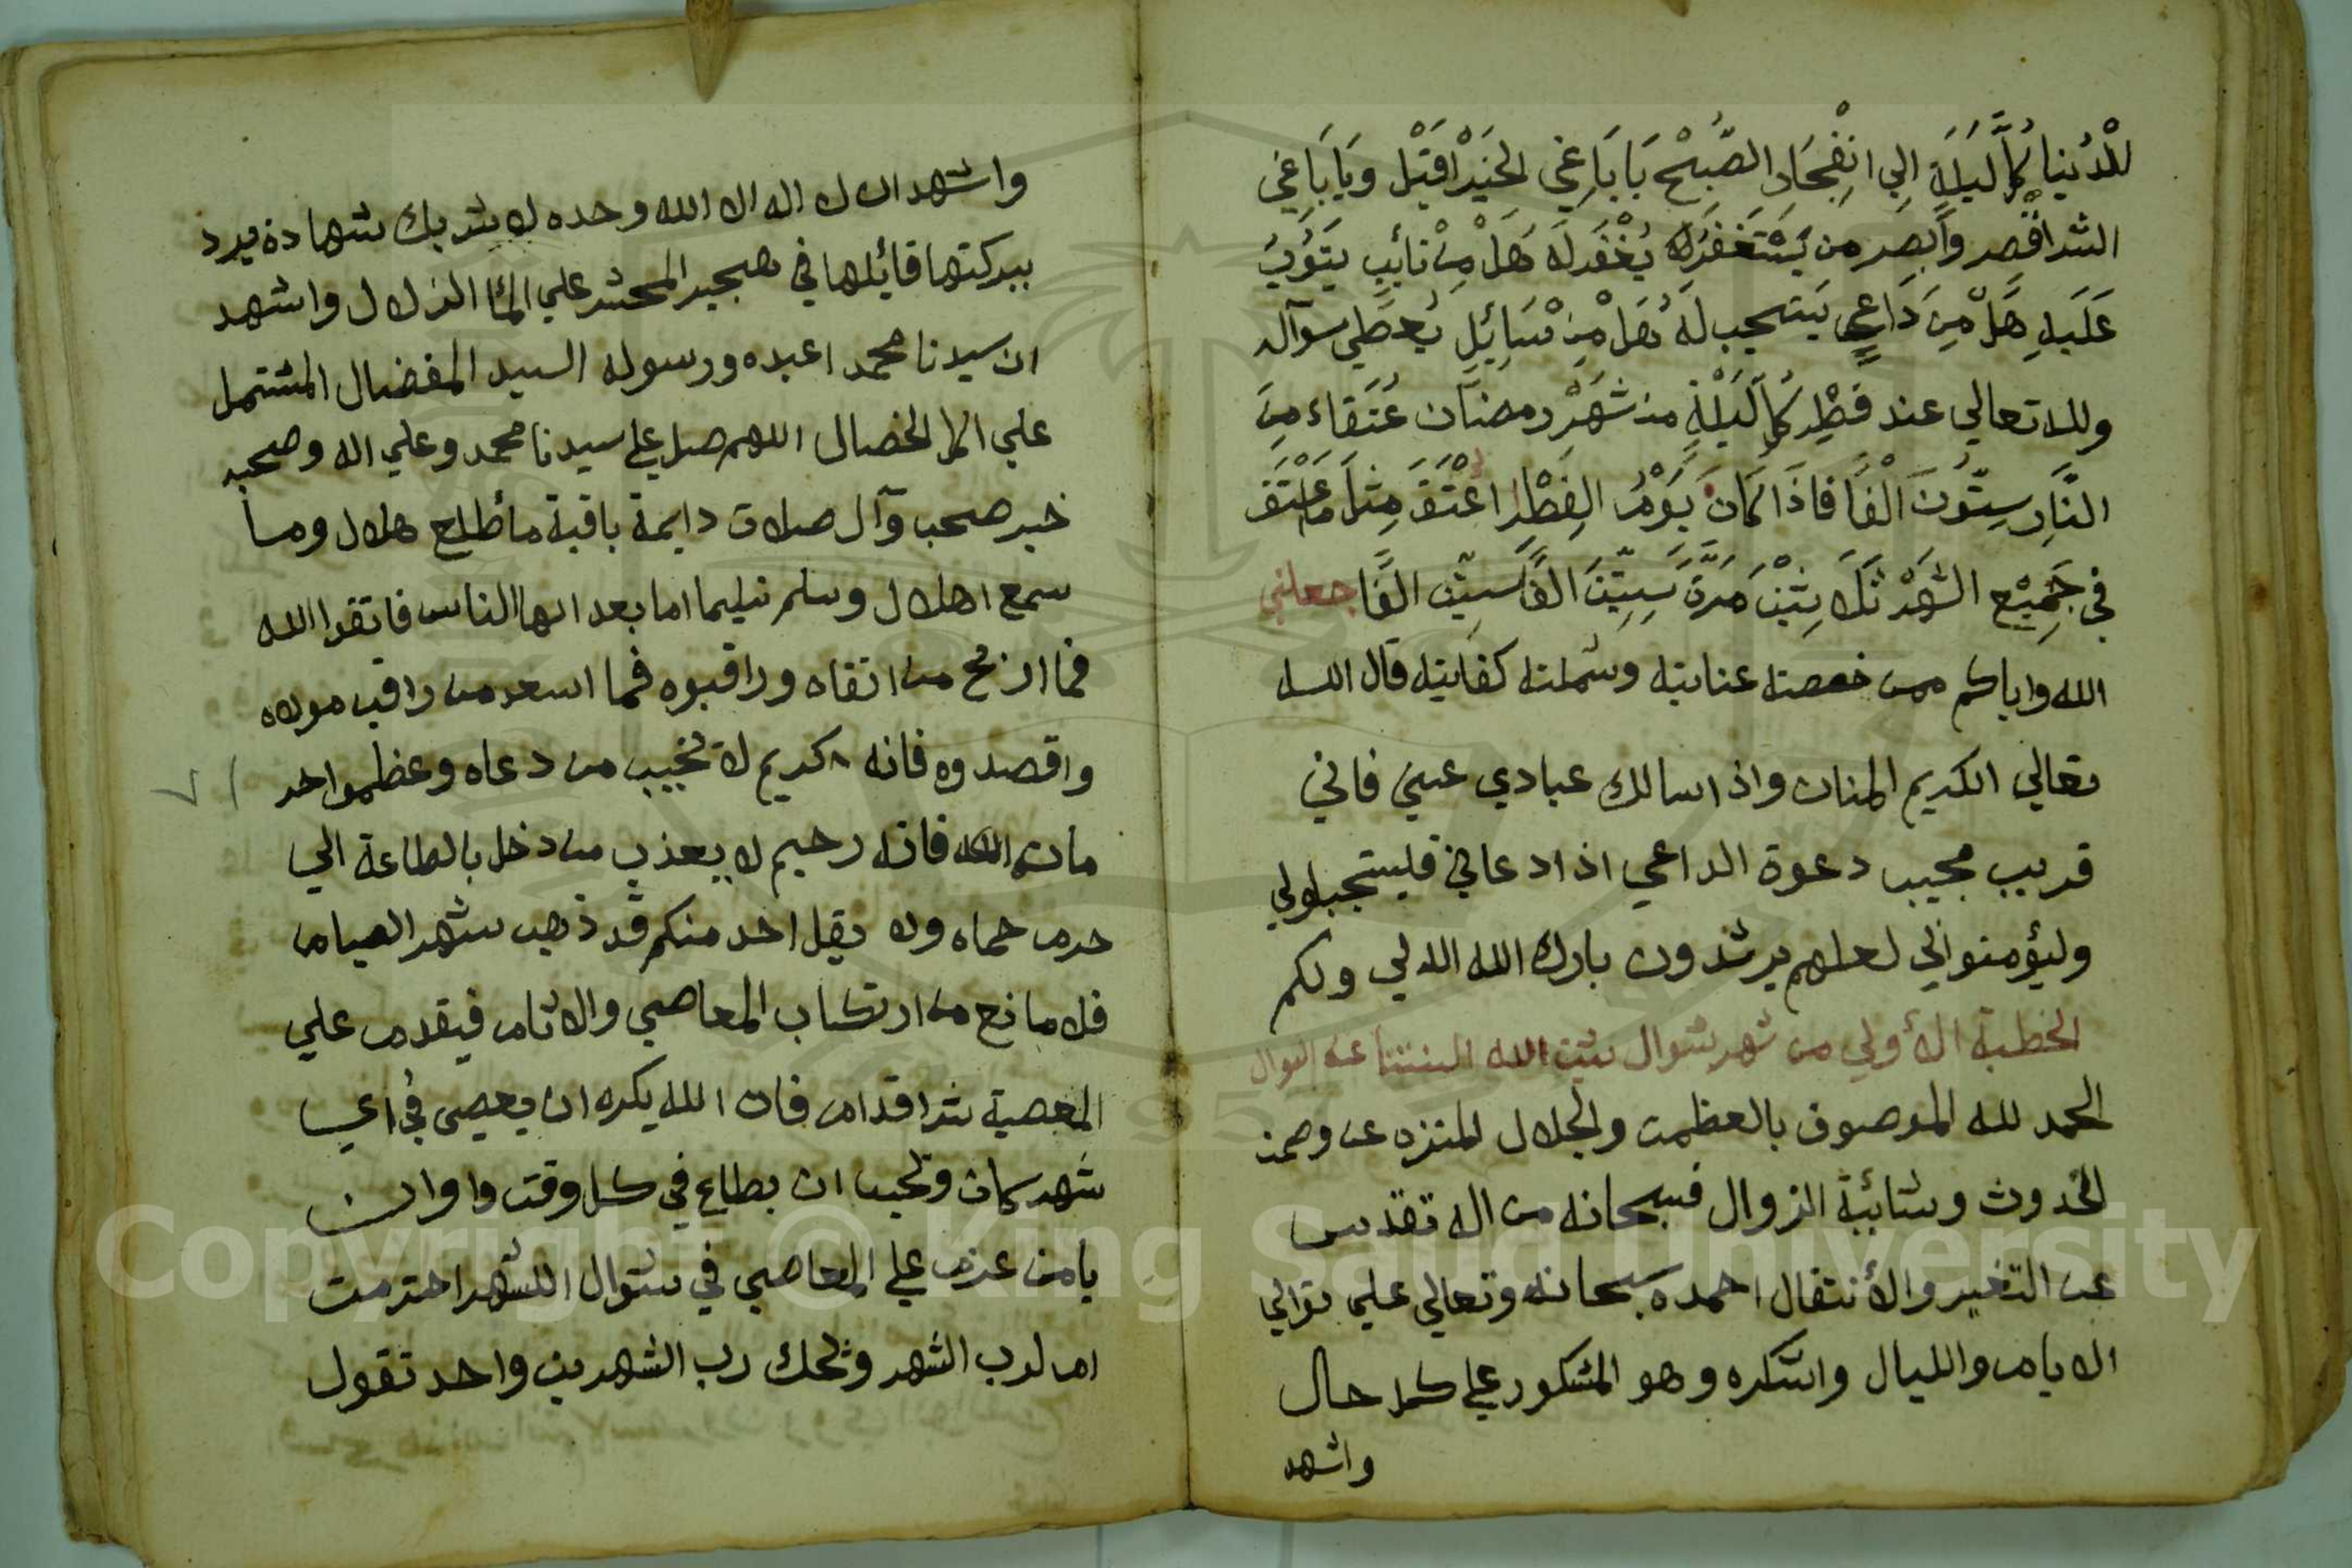 للدُنيا كُلَّ لَيلَةٍ الي انْفِجَارِ الصُّبحْ يَا بَاغِي الخَيْر اقْبَل وَيَا بَاغِي
الشر اقْصِر وَابصَر من يَسْتَغفِرلَهُ يُغْفَر لَهُ هَلْ مِنْ تائِبٍ يَتُوبُ
عَلَيهِ هَلْ مِنَ دَاعِي يَستجيب لَهُ هَلْ مِنْ سَائِلٍ يُعطي سوآله
ولله تعالي عند فِطْرِ كُلِّ لَيْلَةٍ من شَهْرِ رمضَان عُتَقَاء مِنَ
النَّارِ سِتُّونَ الْفًا فاذَا كَانَ يَوْمُ الفِطْرِ اعْتَقَ مِثلَ مَا عْتَقَ
في جَمِيْعِ الشَهْر ثَلَاثِيْنَ مَرَّةً سِتِّينَ الفًا سِتِّين الفًا جعلني
الله واياكم ممن خصصته عنايته وشملته كفايته قال الله
تعالي الكريم المنان واذا سالك عبادي عني فاني
قريب مجيب دعوة الداعي اذا دعاني فليستجيبولي
وليؤمنوا بي لعلهم يرشدون بارك الله الله لي ولكم
الخطبة الأولي من شهر شوال
الحمد لله الموصوف بالعظمت والجلال المنزه عن وصمة
الحدوث وشائبة الزوال فسبحانه من اله تقدس
عن التغير والأنتقال احمده سبحانه وتعالي علي توالي
الايام والليال واشكره وهو المشكور علي كل حال
واشهد
واشهد ان لا اله الا الله وحده لا شريك شهادة يرد
ببركتها قائلها في هجير المحشر علي المآ الزلال واشهد
ان سيدنا محمدا عبده ورسوله السيد المفضال المشتمل
علي اكمل الخصال اللهم صل علي سيدنا محمد وعلي اله وصحبه
خير صحب وآل صلات دايمة باقية ما طلع هلال وما
سمع اهلال وسلم تسليما اما بعد ايها الناس فاتقوا الله
فما اربح من اتقاه وراقبوه فما اسعد من راقب مولاه
واقصدوه فانه كريم لا تخيب من دعاه وعظموا حر
مات الله فانه رحيم لا يعذب من دخل بالطاعة الي
حرم حماه ولا يقل احد منكم قد ذهب شهر الصيام
فلا مانع من ارتكاب المعاصي والاثام فيقدم علي
المعصية شر اقدام فان الله يكره ان يعصي في اي
شهر كان وتحب ان يطاع في كل وقت واوان
يا من عزم علي المعاصي في شوال اللشهر احترمت
ام لرب الشهر ويحك رب الشهرين واحد تقول